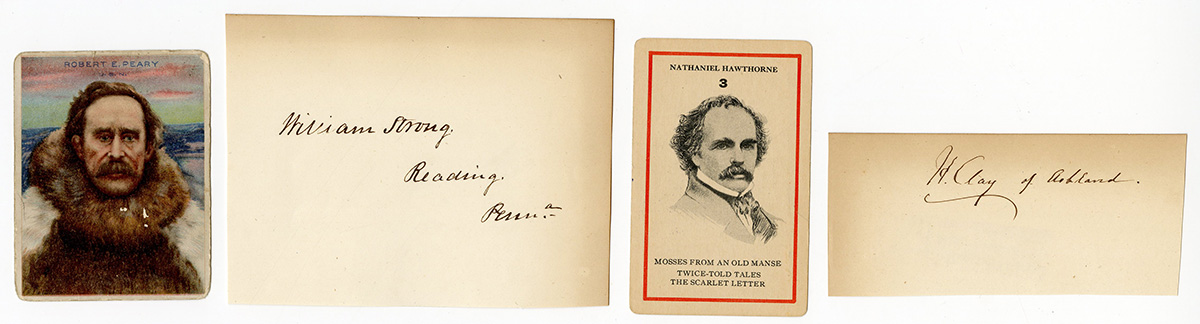 ROBERT E. PEARY
William Strong.
Reading.
Penna.
NATHANIEL HAWTHORNE
3
MOSSES FROM AN OLD MANSE
TWICE-TOLD TALES
THE SCARLET LETTER
H. Clay of Ashland.